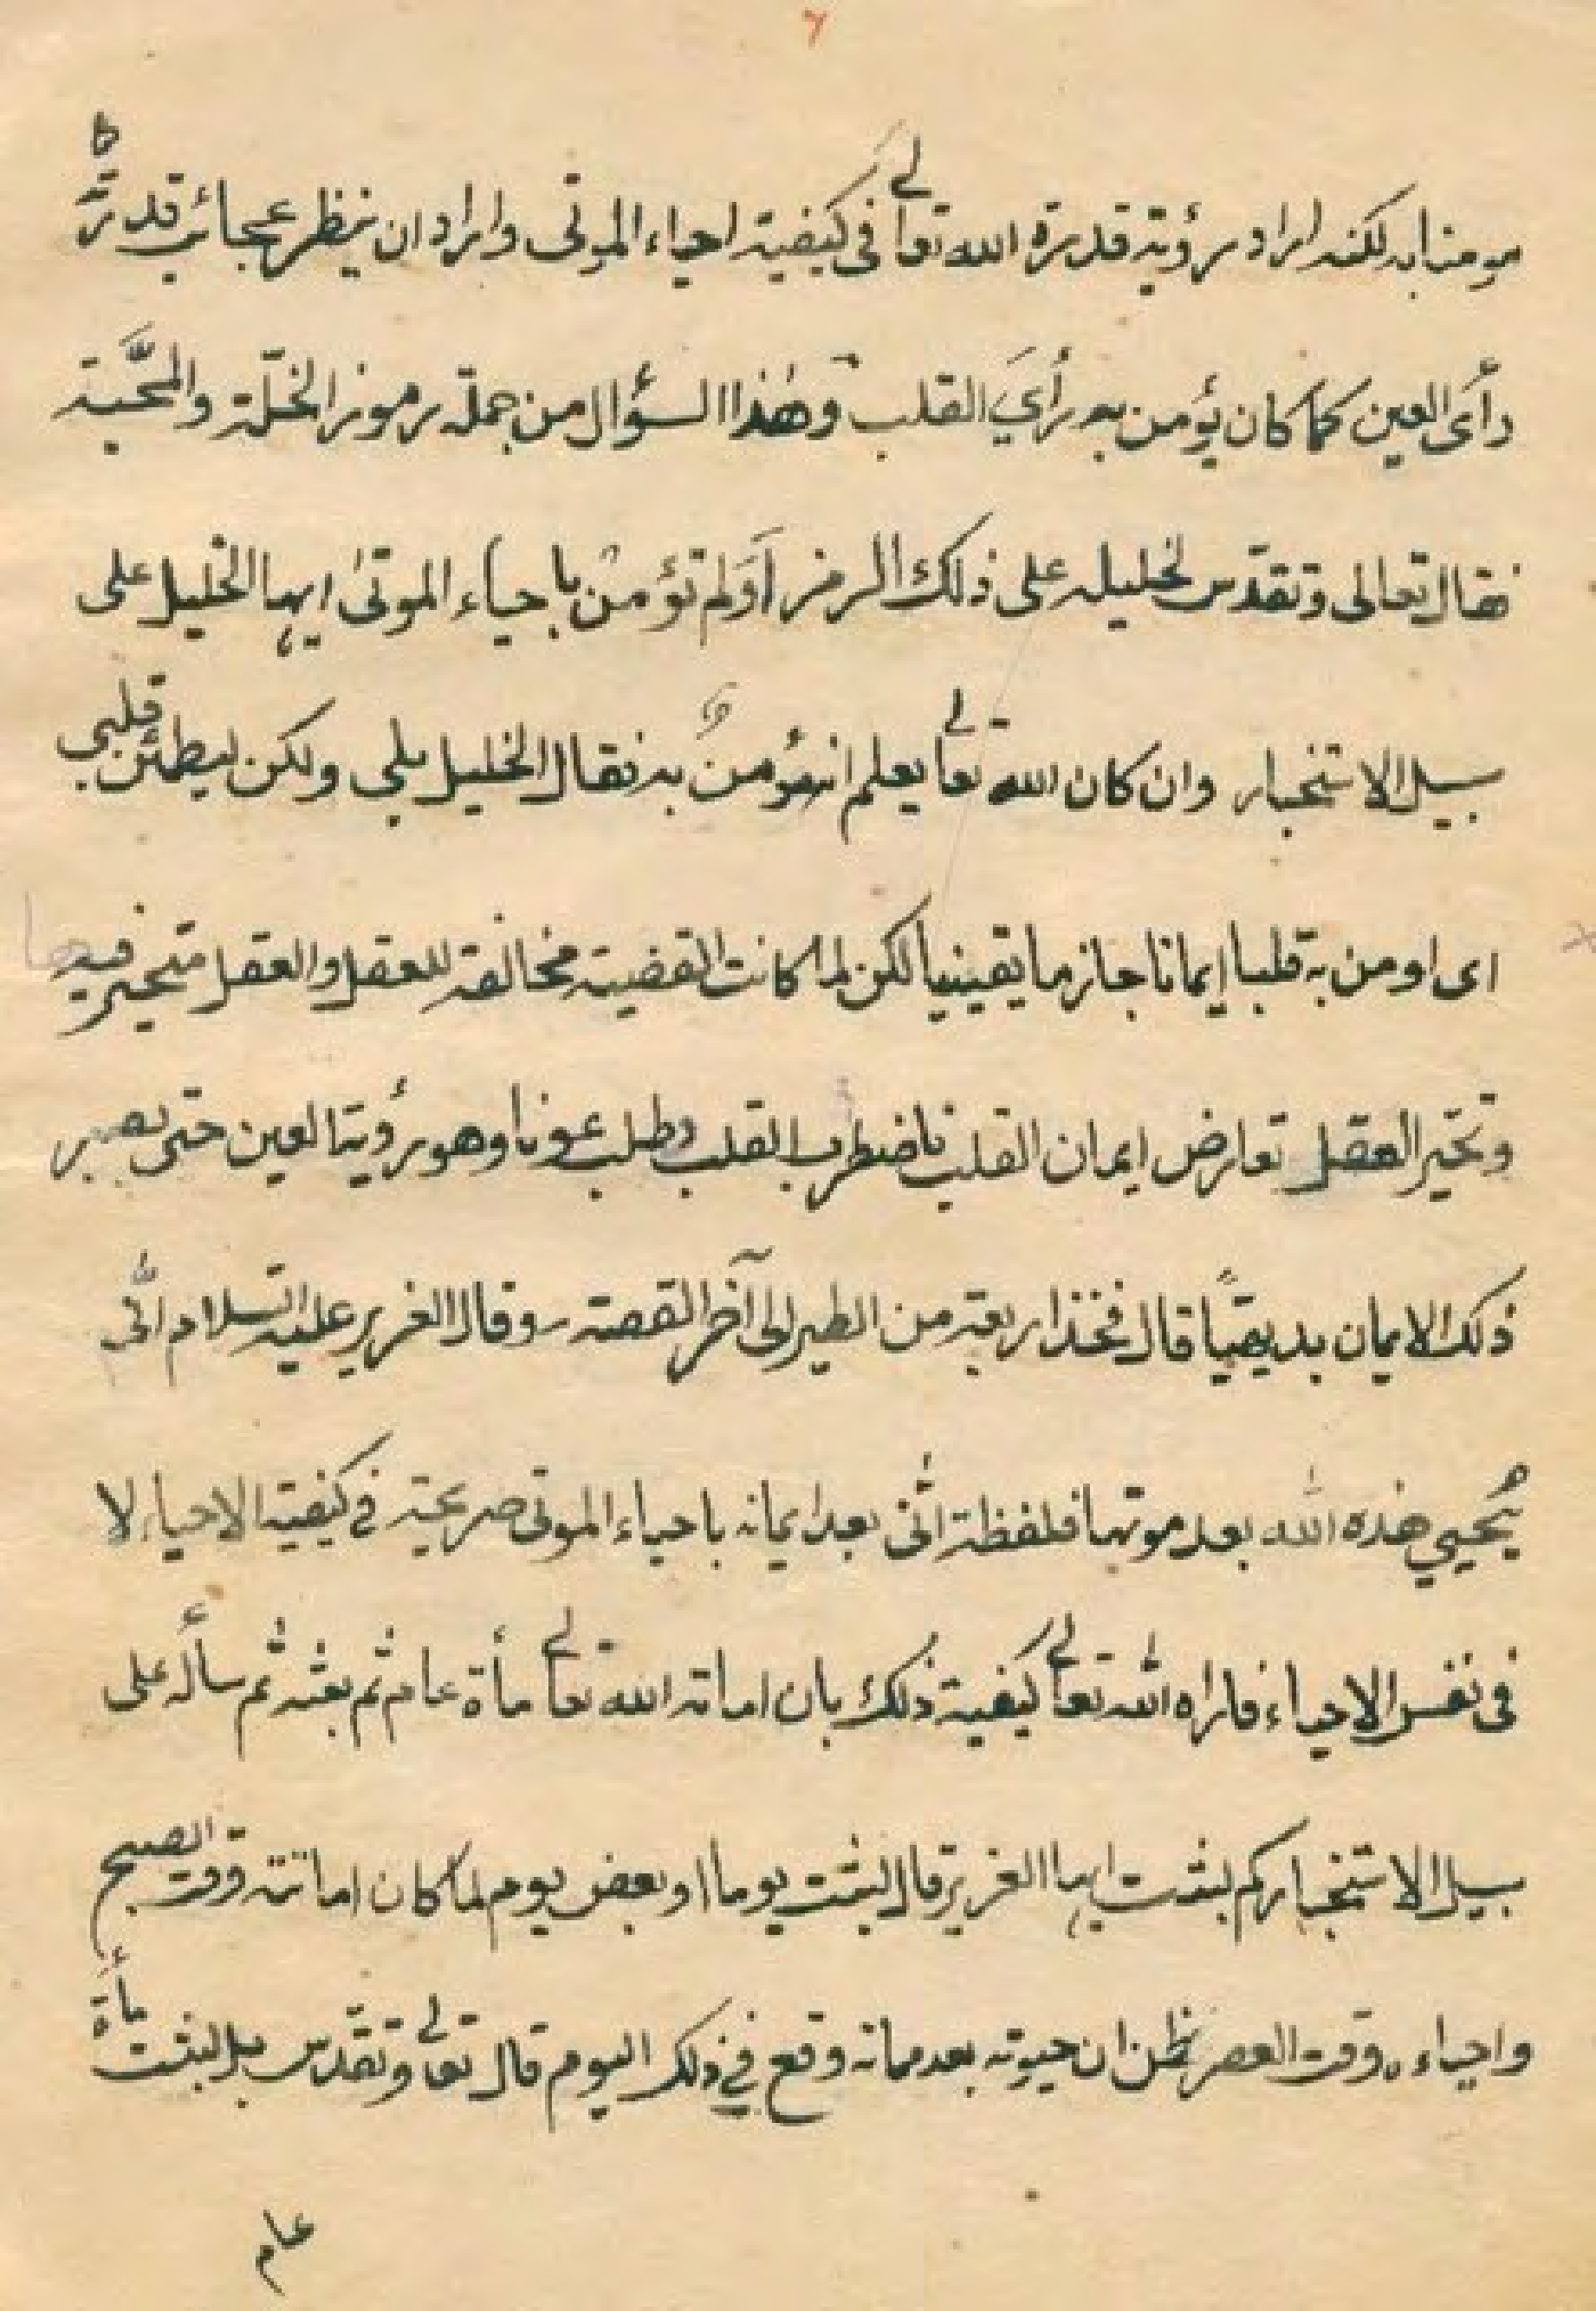 ٦
مومنا به لكنه اراد رؤية قدرة الله تعالے فى كيفية احياء الموتى واراد ان ينظر عجائب قدرته
رأى العين كما كان يؤمن به رأيَ القلب وهٰذا السؤال من جملة رموز الخلّة والمحَّبة
فقال تعالى وتقدّس لخليله على ذلك الرمز اَوَلم تؤمنْ باحياء الموتىٰ ايها الخليل على
سبيل الاستخبار وان كان الله تعالے يعلم انه مؤمنٌ به فقال الخليل بلى ولكن ليطمئن قلبي
اى اومن به قلبا ايمانا جازما يقينيا لكن لما كانت القضية مخالفة للعقل والعقل متحير فيها
وتحيّر العقل تعارض ايمان القلب فاضطرب القلب وطلب عونا وهو رؤيتا لعين حتى يصير
ذلك الايمان بديهيّاً قال فخذ اربعة من الطير الى آخر القصة وقال العزير عليه السلام انّٰى
يُحيي هذه الله بعد موتها فلفظة انّٰى بعد ايمانه باحياء الموتى صريحة في كيفية الاحياء لا
فى نفس الاحياء فاراه الله تعالے كيفية ذلك بان اماته الله تعالے مأة عام ثم بعثه ثم سأله على
سبيل الاستخبار كم لبثت ايها العزير قال لبثت يوما او بعض يوم لما كان اماتته وقت الصبح
واحياءه وقت العصر فظن ان حيوته بعد مماته وقع في ذلك اليوم قال تعالے وتقدّس بل لبثت مأة
عام